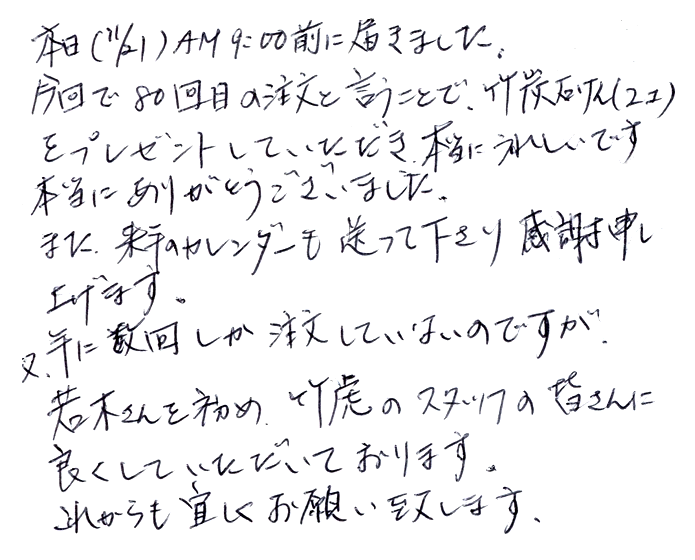 本日(11/21)AM9:00前に届きました。
今回で80回目の注文と言うことで、竹炭石けん(2コ)
をプレゼントしていただき、本当にうれしいです
本当にありがとうございました。
また、来年のカレンダーも送って下さり感謝申し
上げます。
又、年に数回しか注文していないのですが、
若木さんを初め、竹虎のスタッフの皆さんに
良くしていただいております。
これからも宜しくお願い致します。